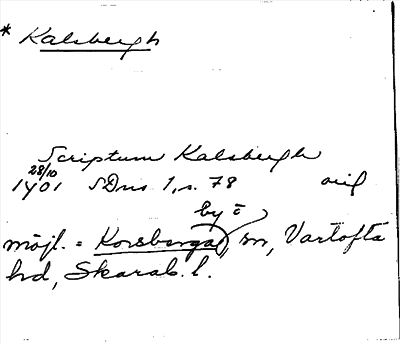 * Kalsbergh
Scriptum Kalsbergh
28/10
1401 SDns 1, s. 78 orig
by o
möjl. = Korsberga, sn, Vartofta
hd, Skarab. l.